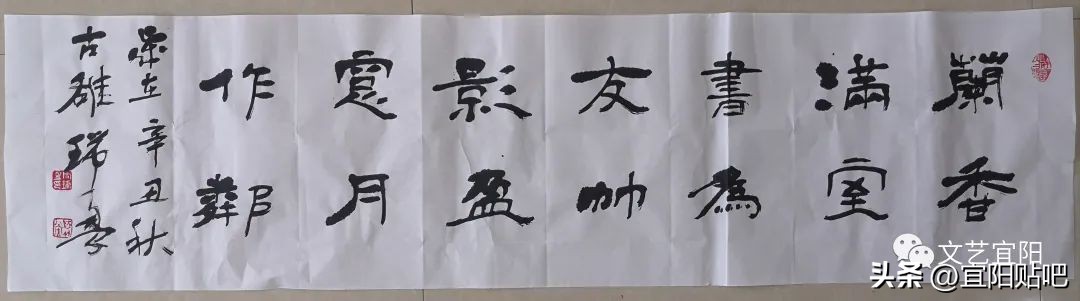 蘭香
滿室
書為
友竹
影盈
窗月
作鄰
歲在辛丑秋
古雒瑞
文艺宜阳
头条 @宜阳贴吧